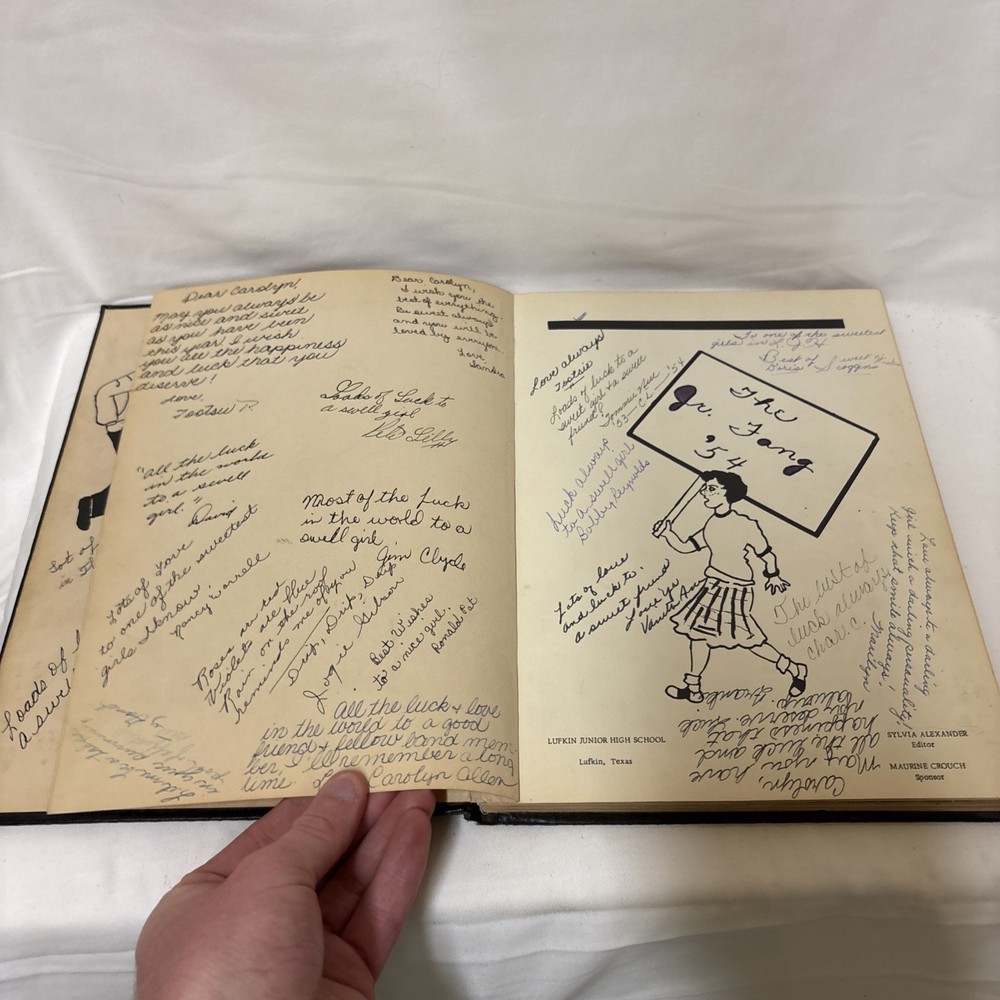 Dear Carolyn,
May you always be
as nice and sweet
as you have been
this year. I wish
you all the happiness
and luck that you
deserve!
Love,
Tootsie P.
Dear Carolyn,
I wish you the
best of everything.
Be sweet always
and you will be
loved by everyone.
Love,
Sandra
Loads of Luck to
a swell girl
Pete Lilly
"All the luck
in the world
to a swell
girl."
David
Most of the Luck
in the world to a
swell girl
Jim Clyde
Lots of Love
to one of the sweetest
girls I know.
Roses are red
Violets are blue
Rain on the roof
reminds me of you
Drip, Drip, Drip
Best Wishes
to a nice girl.
Ronald Pat
All the luck & love
in the world to a good
friend & fellow band mem-
ber, I'll remember a long
time
Love Carolyn Allen
Loads of
a swe
in
Love always
Tootsie
Loads of luck to a
sweet girl & a swell
friend!
'53 — '54
To one of the sweetest
girls in L. J. '54
Best of
Doris Scoggins
The
Jr. Fang
'54
Luck always
to a swell girl
Bobby Reynolds
Lots of love
and luck to
a sweet friend
Love ya
The best of
luck always
Char. C.
Love always to a darling
girl with a darling personality!
Keep that smile always!
Marilyn
Carolyn,
May you have
all the luck and
happiness that
you deserve. Luck
always.
Frankie
LUFKIN JUNIOR HIGH SCHOOL
Lufkin, Texas
SYLVIA ALEXANDER
Editor
MAURINE CROUCH
Sponsor